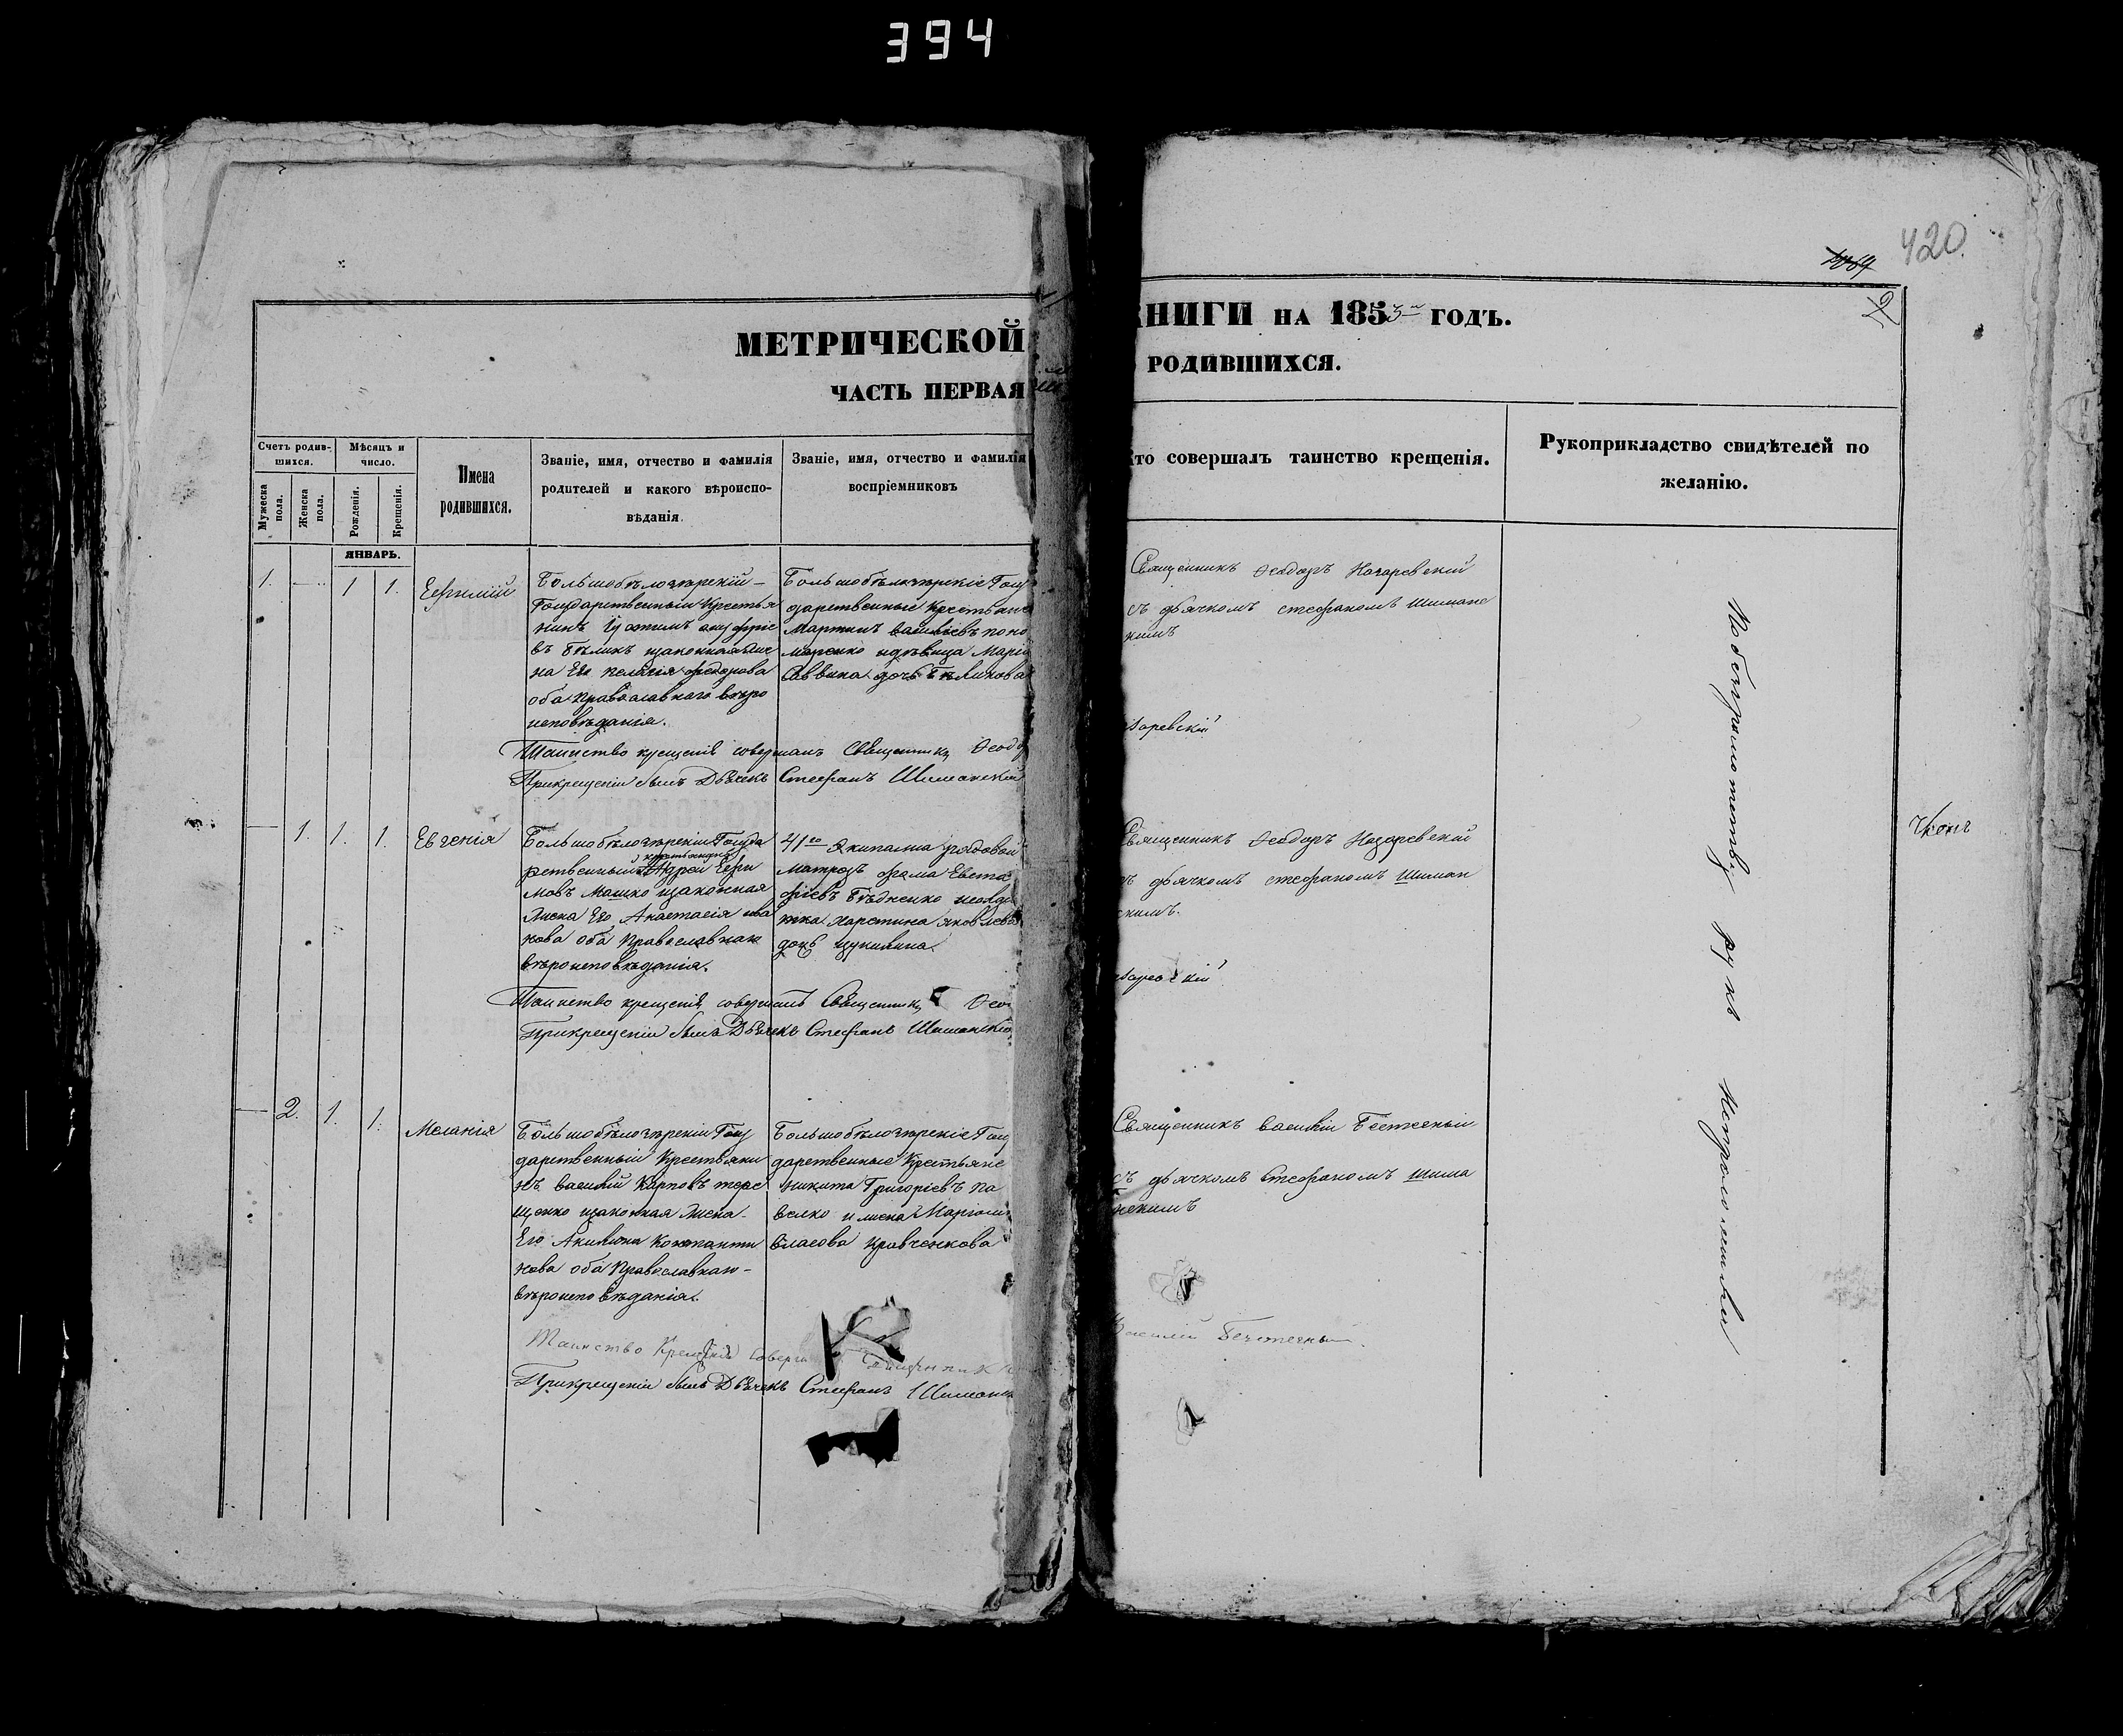 394
420.
МЕТРИЧЕСКОЙ
КНИГИ НА 1853 ГОДЪ.
ЧАСТЬ ПЕРВАЯ
РОДИВШИХСЯ.
Счетъ родив-
шихся.
Мѣсяцъ и
число.
Мужеска
пола.
Женска
пола.
Рожденія.
Крещенія.
Имена
родившихся.
Званіе, имя, отчество и фамилія
родителей и какого вѣроиспо-
вѣданія.
Званіе, имя, отчество и фамилія
воспріемниковъ
Кто совершалъ таинство крещенія.
Рукоприкладство свидѣтелей по
желанію.
ЯНВАРЬ.
1. — 1 1. Евфимій
Большобѣлозѣрскій
Государственный Крестья
нинъ
въ Бѣликъ изаконная
на Его Пелагія Федорова
оба православнаго вѣро
исповѣданія.
Большобѣлозѣрскіе Госу
дарственные Крестьяне
Мартинъ Васильевъ Поно
маренко идѣвица Марія
Саввина дочь Бѣликова
Священникъ Ѳеодоръ Назаревскій
съ дьячкомъ Стефаномъ Шиманс
кимъ
Таинство крещенія совершалъ Священникъ Ѳеодо
заревскій
Прикрещеніи былъ Дьячекъ Стефанъ Шиманскій
— 1. 1. 1. Евгенія
Большобѣлозѣрскій Госуда
рственный Андрей Ефи
мовъ Машко изаконная
Жена Его Анастасія Ива
нова оба Православнаго
вѣроисповѣданія.
41го Экипажа рядовой
матрозъ Фама Евста
фіевъ Бѣдненко исолда
тка Харстина Яковлева
дочь
Священникъ Ѳеодоръ Назаревскій
съ дьячкомъ Стефаномъ Шиман
скимъ.
Таинство крещенія совершалъ Священникъ Ѳео
заревскій
Прикрещеніи былъ Дьячекъ Стефанъ Шиманскій
— 2. 1. 1. Меланія
Большобѣлозѣрскій Госу
дарственный Крестьяни
нъ Василій Карповъ Тере
щенко изаконная Жена
Его Акилина Константи
нова оба Православнаго
вѣроисповѣданія.
Большобѣлозѣрскіе Госу
дарственные Крестьяне
Никита Григоріевъ Па
велко и жена Маріам
Власова Кравченкова
Священникъ Василій Безтечный
съ дьячкомъ Стефаномъ Шима
нскимъ
Таинство Крещенія совершалъ Священникъ
Василій Безтечный
Прикрещеніи былъ Дьячекъ Стефанъ Шиманск
Побезграмотству рукъ Неприложили